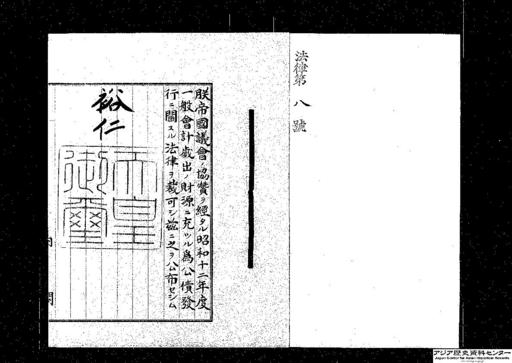 法律第八號
朕帝國議會ノ協贊ヲ經タル昭和十二年度
一般會計歲出ノ財源ニ充ツル爲公債發
行ニ關スル法律ヲ裁可シ茲ニ之ヲ公布セシム
裕仁
天皇御璽
内閣
アジア歴史資料センター
Japan Center for Asian Historical Records